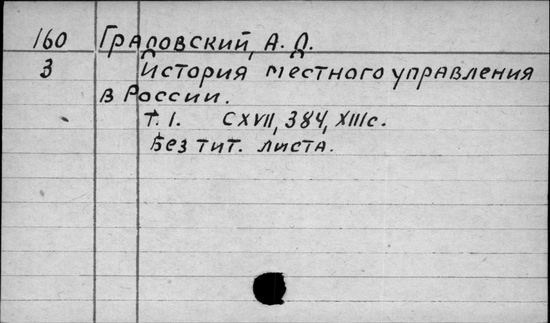 160 Градовский, А. Д.
3 История местного управления
в России.
Т. I. CXVII, 384, XIII с.
Без тит. листа.